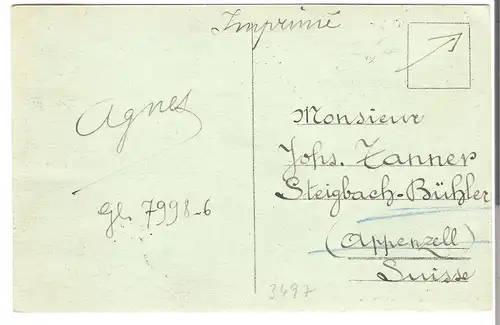 Imprimé
Agnes
Gl. 7998-6
Monsieur
Johs. Tanner
Steigbach-Bühler
(Appenzell)
Suisse
3497